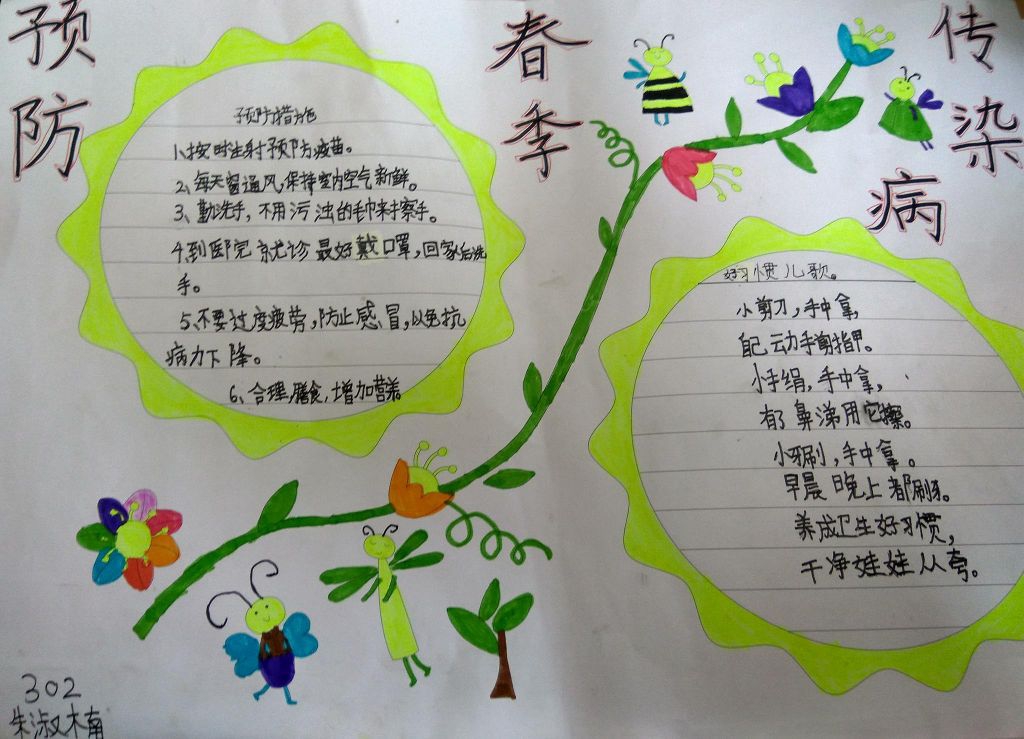 预防
春季
传染
病
预防措施
1、按时注射预防疫苗。
2、每天窗通风,保持室内空气新鲜。
3、勤洗手,不用污浊的毛巾来擦手。
4、到医院就诊最好戴口罩,回家后洗
手。
5、不要过度疲劳,防止感冒,以免抗
病力下降。
6、合理膳食,增加营养
好习惯儿歌。
小剪刀,手中拿,
自己动手剪指甲。
小手绢,手中拿,
有鼻涕用它擦。
小牙刷,手中拿。
早晨晚上都刷牙。
养成卫生好习惯,
干净娃娃人人夸。
302
朱淑楠